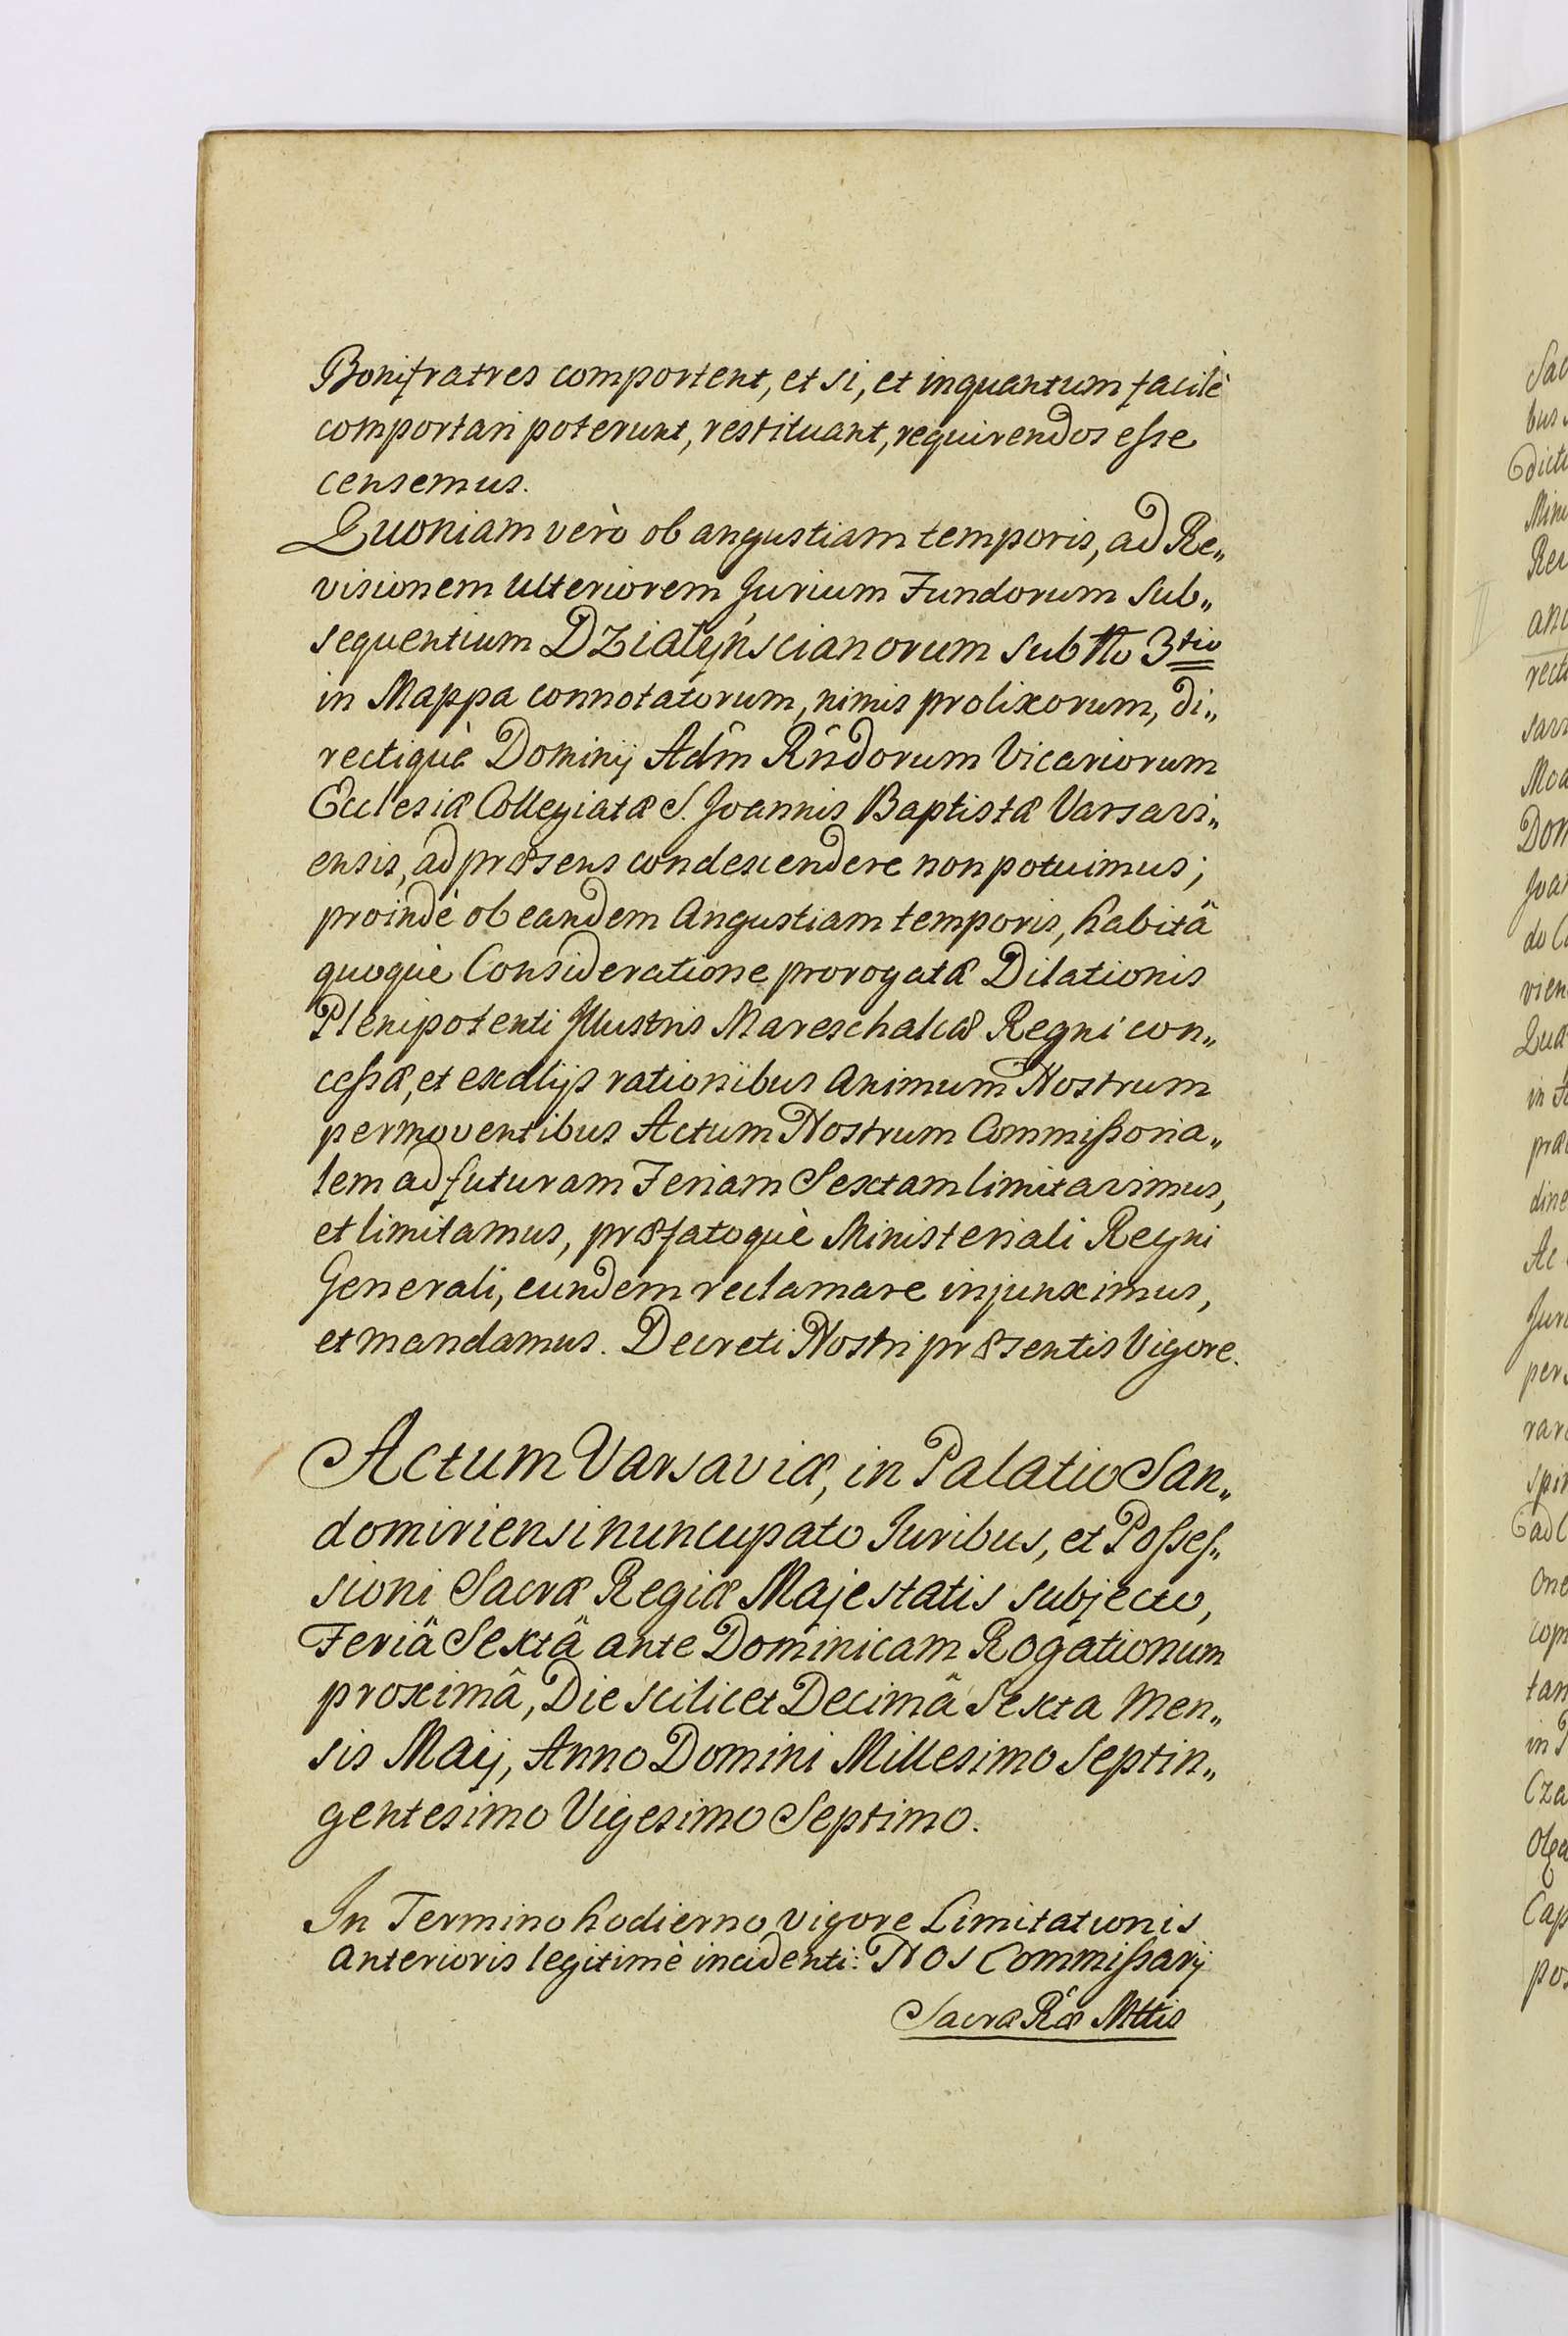 Bonifratres comportent, et si, et inquantum facilè
comportari poterunt, restituant, requirendos eſse
censemus.
Quoniam verò ob angustiam temporis, ad Re„
visionem Ulteriorem Jurium Fundorum sub„
sequentium Dzialÿnscianorum sub No 3tio
in Mappa connotatorum, nimis prolixorum, di„
rectiquè Dominij Adm̂ Rñdorum Vicariorum
Ecclesiæ Collegiatæ S. Joannis Baptistæ Varsavi„
ensis, ad præsens condescendere non potuimus;
proindè ob eandem Angustiam temporis, habitâ
quoquè Consideratione prorogatæ Dilationis
Plenipotenti Jllustris Mareschalcæ Regni con„
ceſsæ, et ex alijs rationibus Animum Nostrum
permoventibus Actum Nostrum Commiſsoria„
lem ad futuram Feriam Sextam limitavimus,
et limitamus, præfatoquè Ministeriali Regni
Generali, eundem reclamare injunximus,
et mandamus. Decreti Nostri præsentis Vigore.
Actum Varsaviæ, in Palatio San„
domiriensi nuncupato Juribus, et Poſseſ„
sioni Sacræ Regiæ Majestatis subjecto,
Feriâ Sextâ ante Dominicam Rogationum
proximâ, Die scilicet Decimâ Sexta Men„
sis Maij, Anno Domini Millesimo Septin„
gentesimo Vigesimo Septimo.
In Termino hodierno vigore Limitationis
Anterioris legitimè incidenti: Nos Commiſsarij
Sacræ Ræ Mttis